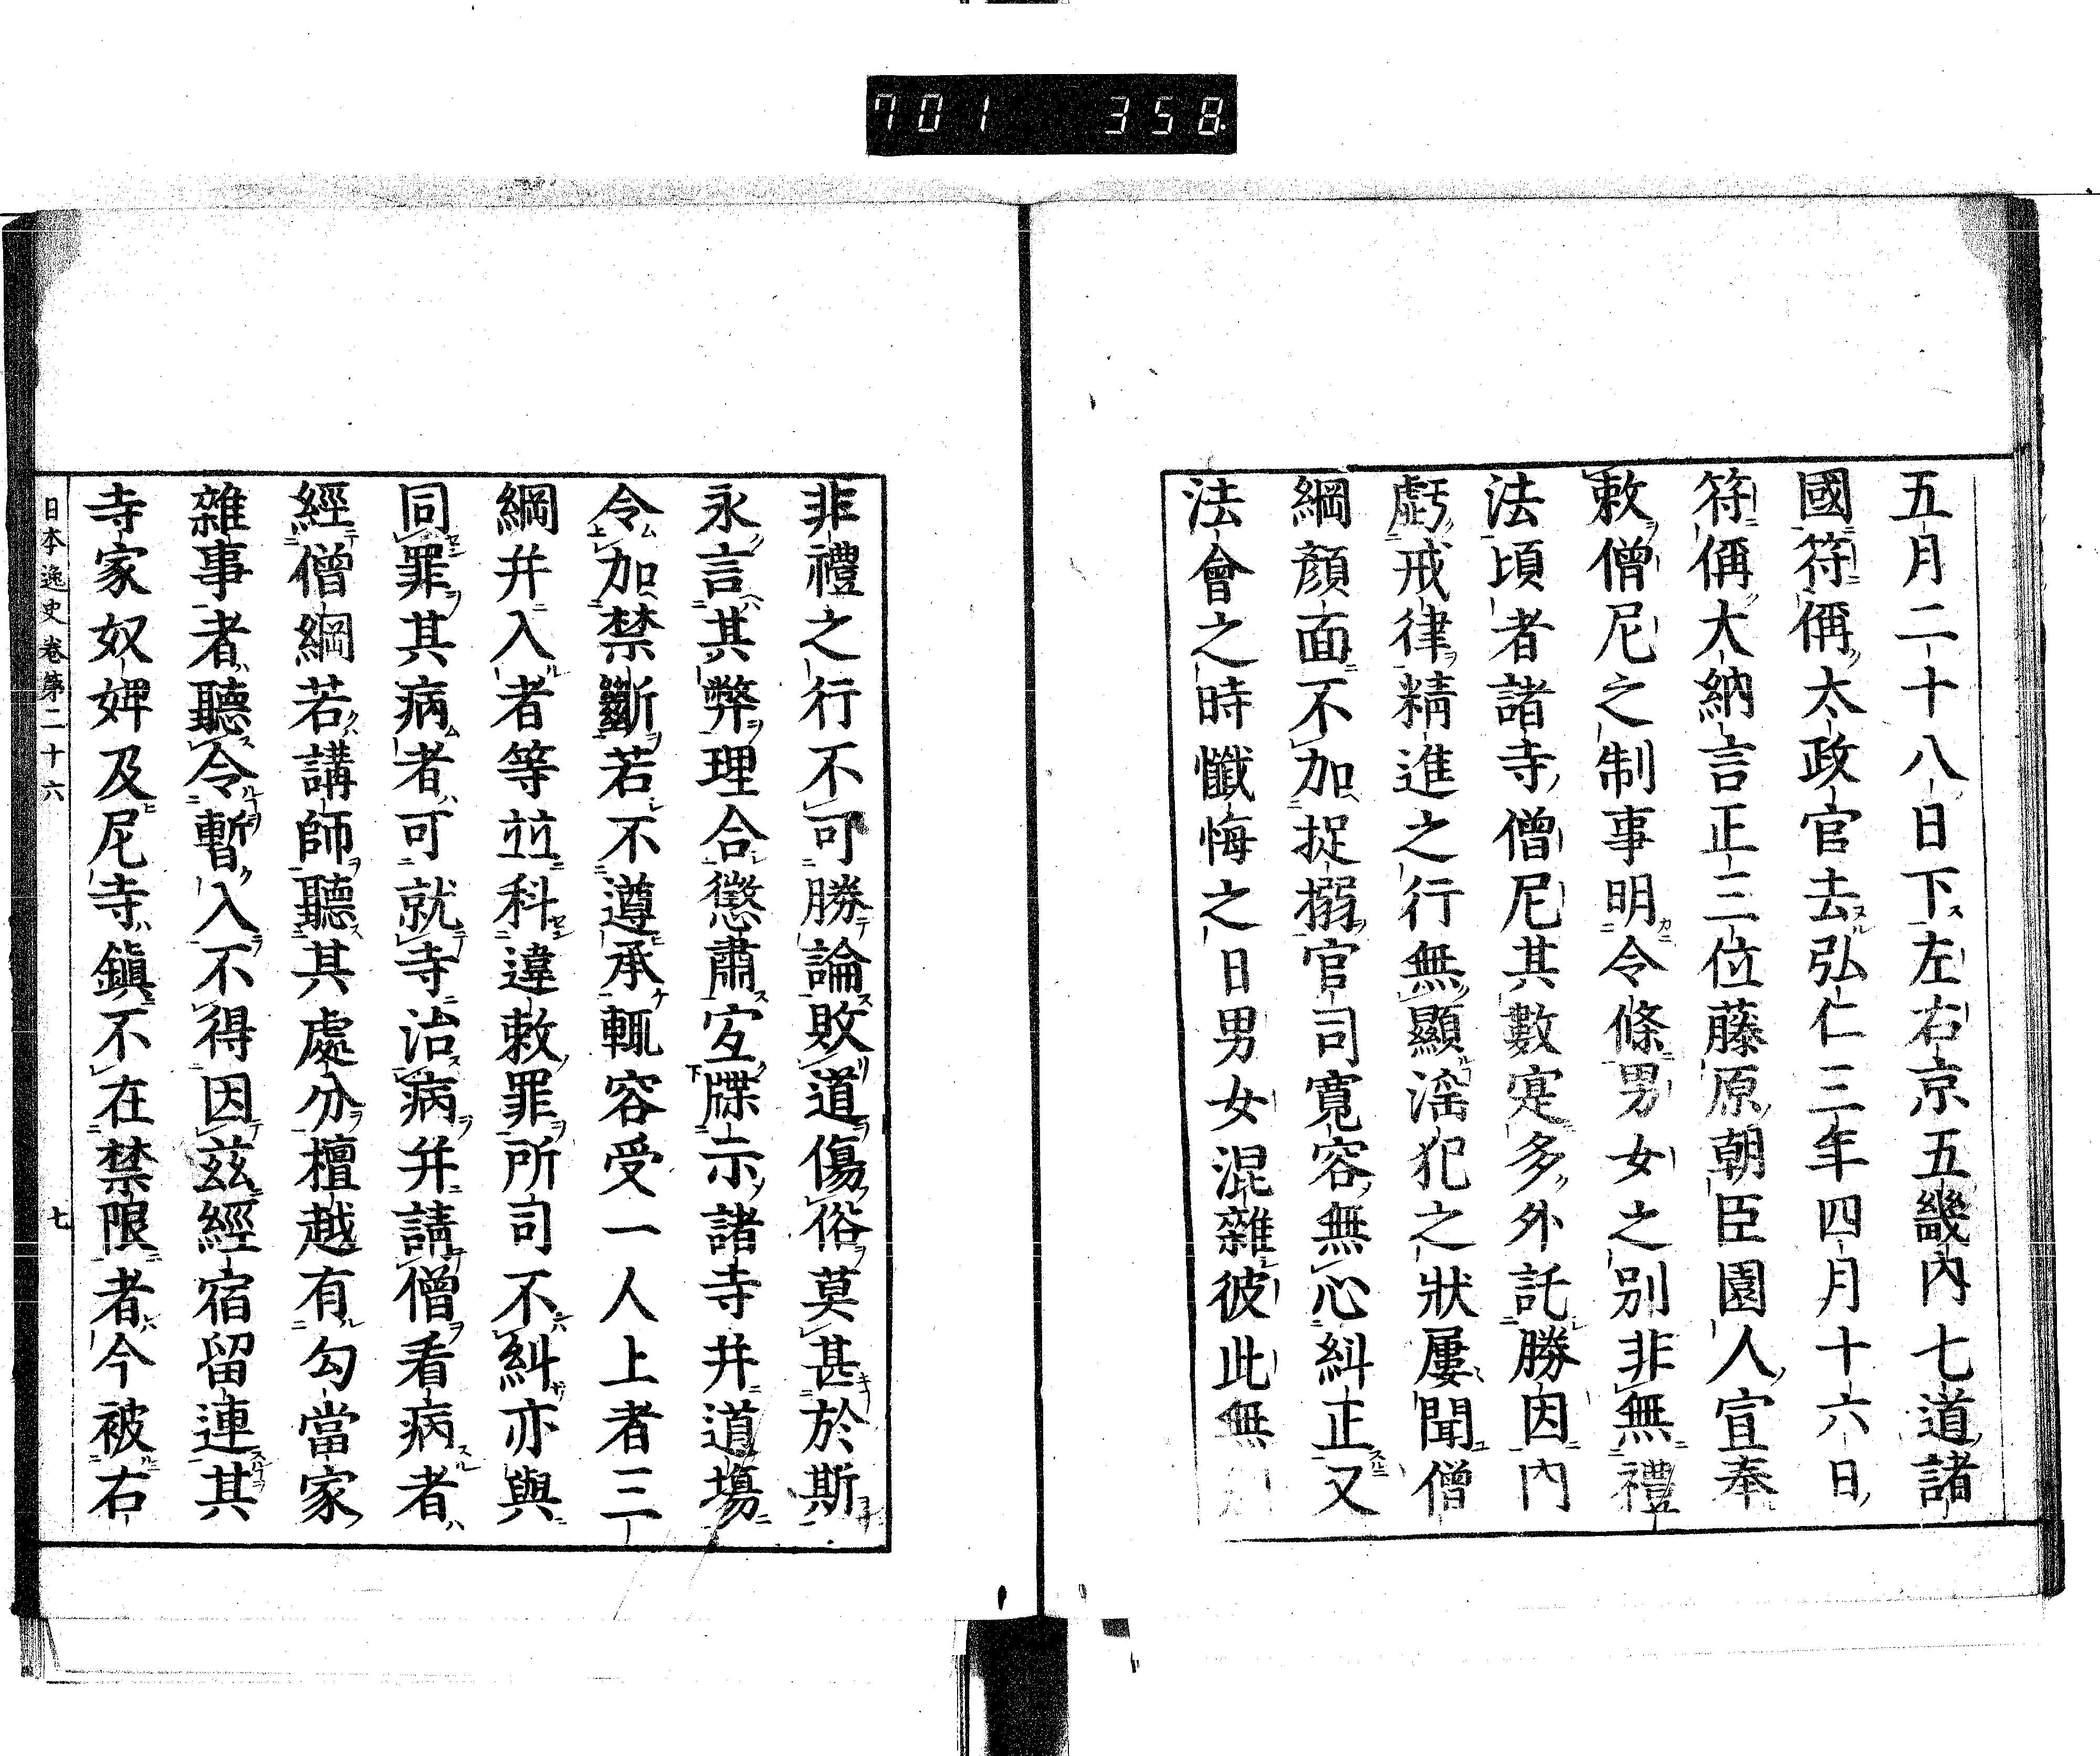 701 358
五月二十八日下左右京五畿内七道諸
國符偁太政官去弘仁三年四月十六日
符偁大納言正三位藤原朝臣園人宣奉
敕僧尼之制事明令條男女之別非無禮
法頃者諸寺僧尼其數寔多外託勝因内
虧戒律精進之行無顯淫犯之狀屢聞僧
綱顏面不加捉搦官司寬容無心糾正又
法會之時懺悔之日男女混雜彼此無
非禮之行不可勝論敗道傷俗莫甚於斯
永言其弊理合懲肅宜牒示諸寺并道場
令加禁斷若不遵承輒容受一人上者三
綱并入者等竝科違敕罪所司不糾亦與
同罪其病者可就寺治病并請僧看病者
經僧綱若講師聽其處分檀越有勾當家
雜事者聽令暫入不得因茲經宿留連其
寺家奴婢及尼寺鎭不在禁限者今被右
日本逸史卷第二十六
七